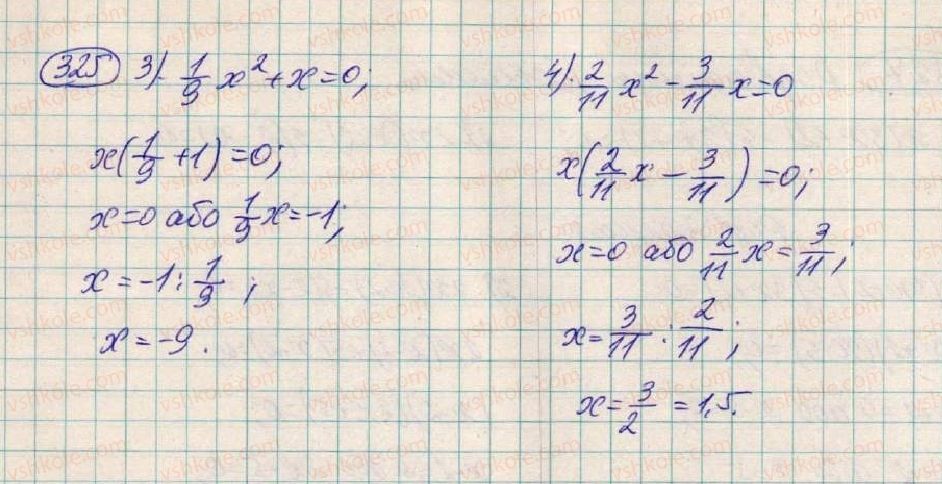 325 3) 1/9 x² + x = 0;
x(1/9 + 1) = 0;
x = 0 або 1/9 x = -1;
x = -1 : 1/9;
x = -9.
4) 2/11 x² - 3/11 x = 0
x(2/11 x - 3/11) = 0;
x = 0 або 2/11 x = 3/11;
x = 3/11 : 2/11;
x = 3/2 = 1,5.
vshkole.com